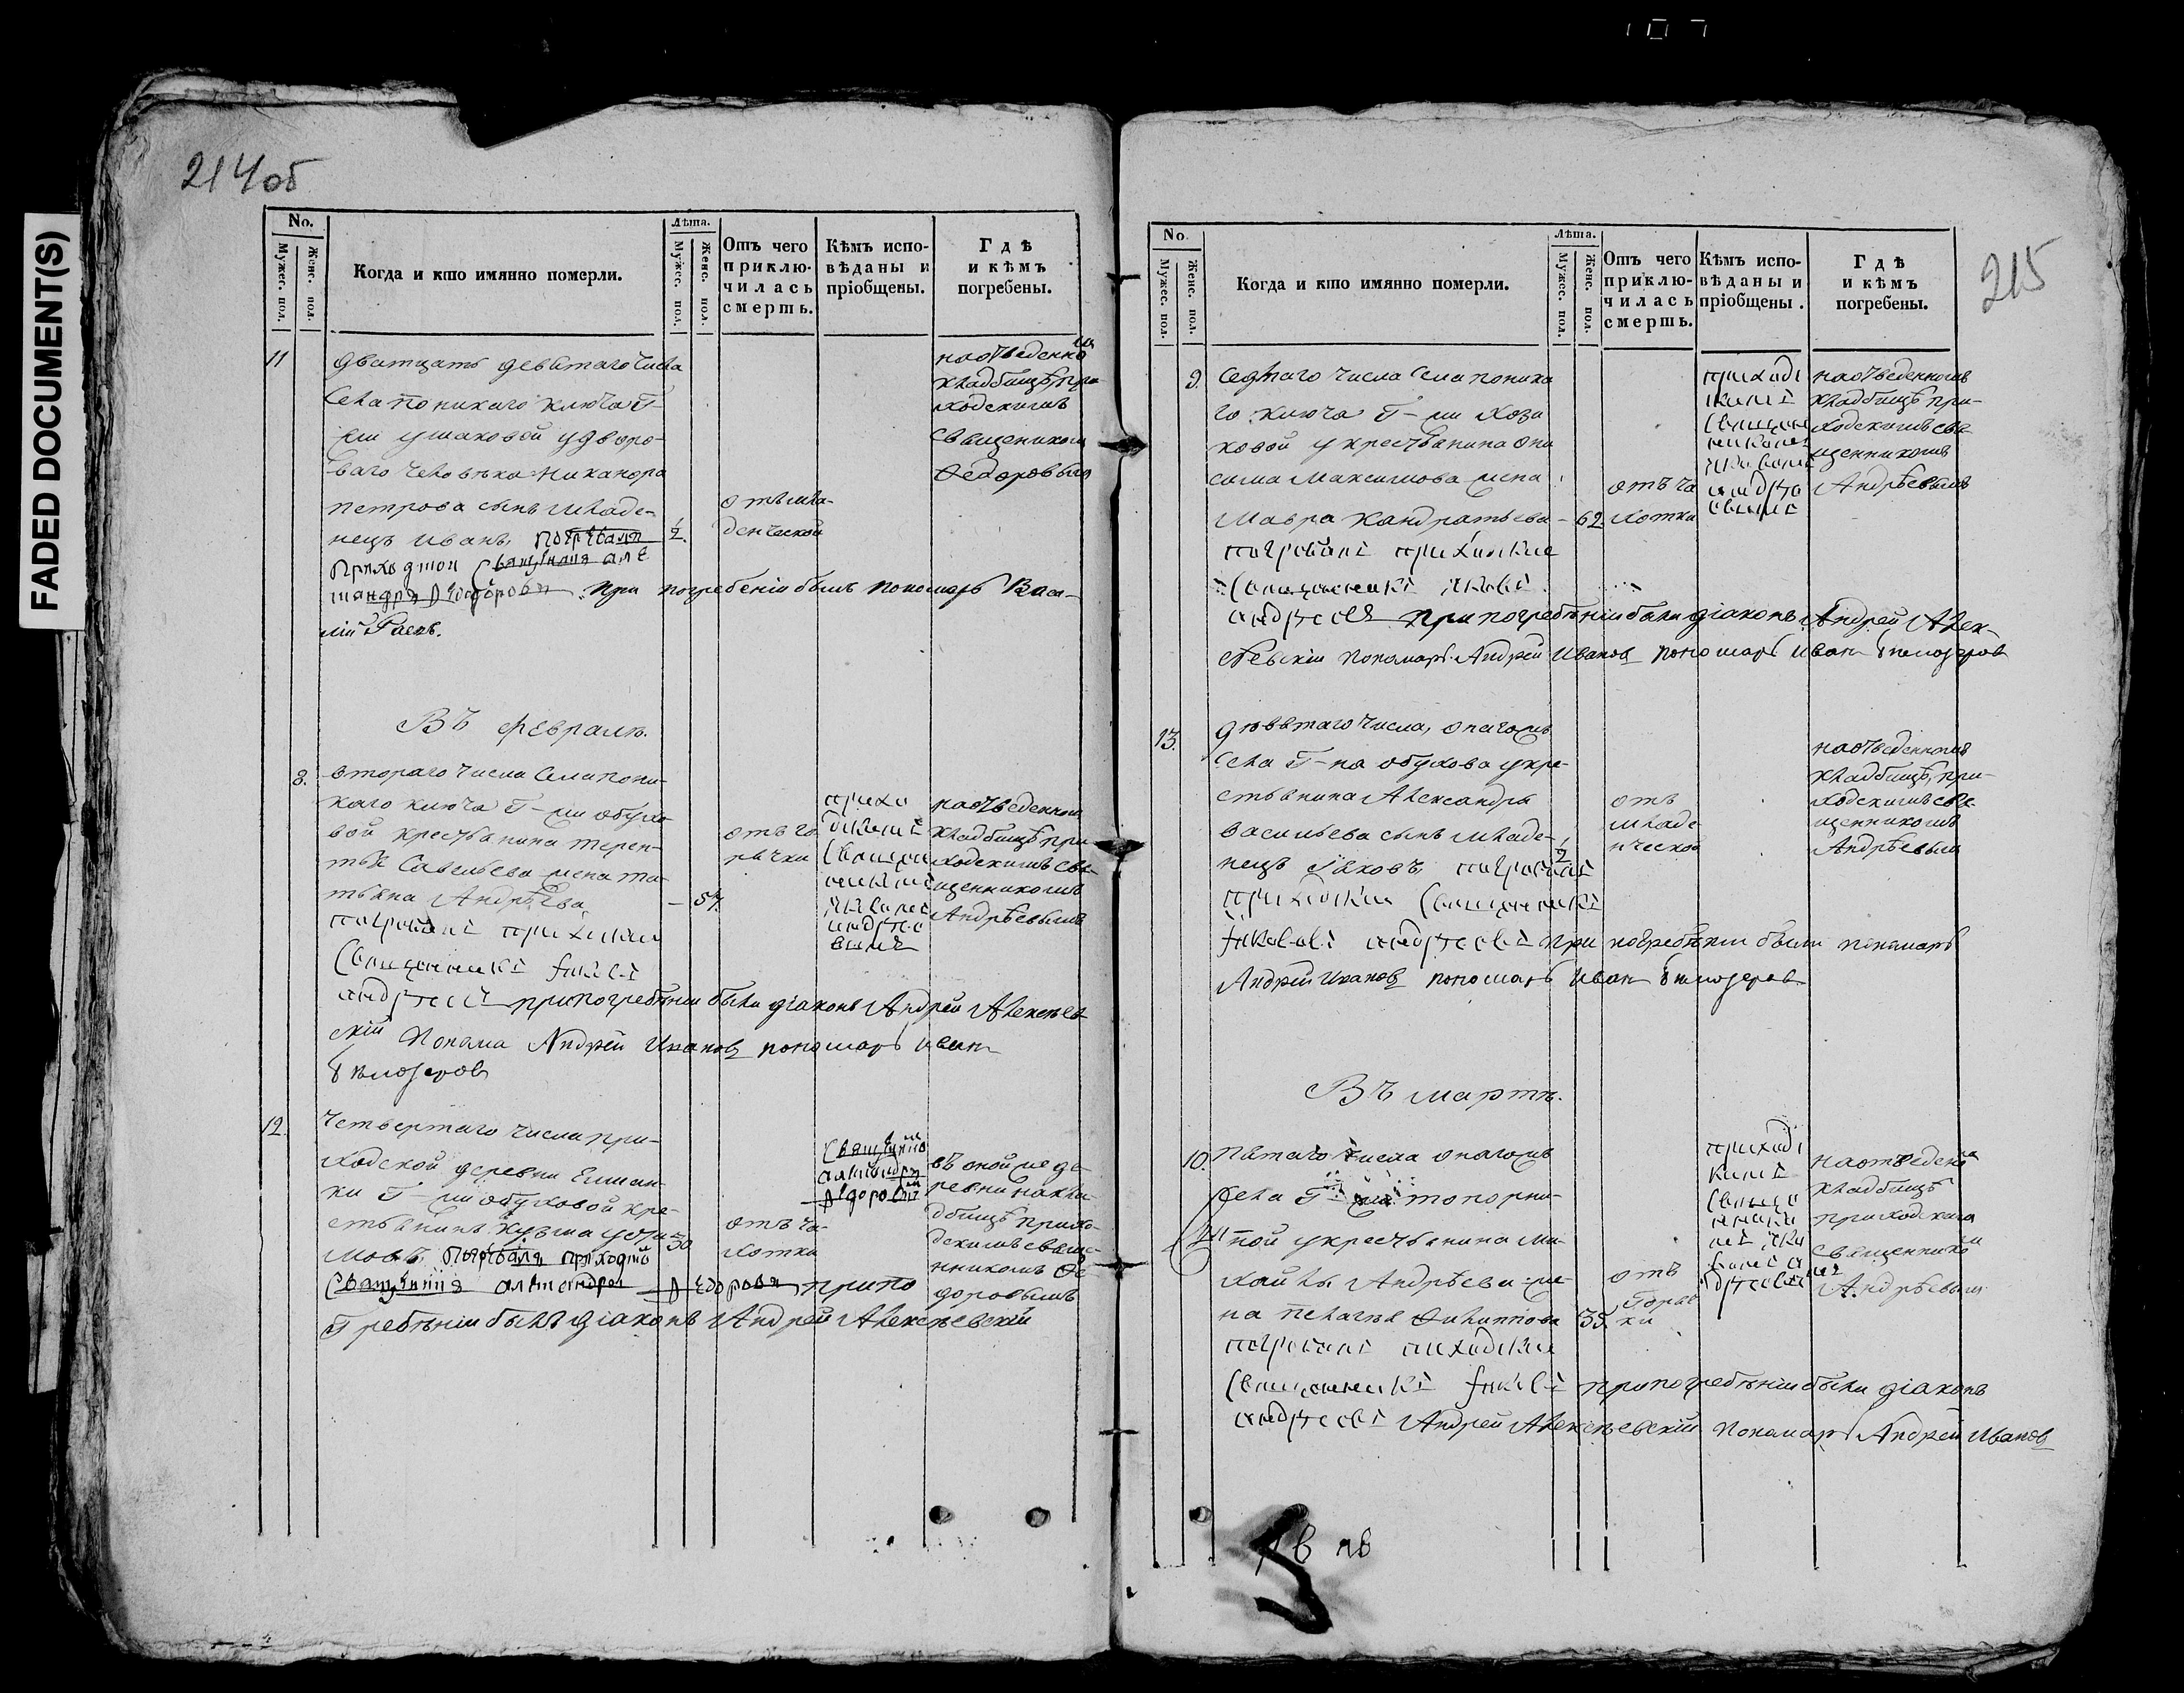 FADED DOCUMENT(S)
214об
No.
Мужес. пол.
Женс. пол.
Когда и кто имянно померли.
Лѣта.
Мужес. пол.
Женс. пол.
Отъ чего приклю-чилась смерть.
Кѣмъ испо-вѣданы и пріобщены.
Гдѣ и кѣмъ погребены.
11
дватцать девятаго числа
Села Поникаго ключа Г-
жи Ушаковой у дворо-
ваго человѣка Никанора
Петрова сынъ младе-
нецъ Иванъ, Погребалъ
приходской Священникъ Але
ксандръ Ѳедоровъ при погребеніи былъ пономарь Васи-
лій Гаевъ.
1/2
отъ мла-
денческой
на отведенномъ
кладбищѣ, при-
ходскимъ
священикомъ
Ѳедоровымъ
Въ февралѣ.
8.
втораго числа Села Пони-
каго ключа Г-жи Обухо
вой крестьянина Терен-
тья Савельева жена Та-
тьяна Андрѣева
погребалъ приходской
Священникъ Іаковъ
Андреевъ при погребеніи были діаконъ Андрей Алексѣев
скій Понама Андрей Иванов пономарь Иван
Бѣлозеров
57.
отъ го-
рячки
приход
скимъ
Священ
никомъ
Андрѣе
вымъ
на отведенном
кладбищѣ при
ходскимъ свя-
щенникомъ
Андрѣевымъ
12.
Четвертаго числа при-
ходской деревни Ешман-
ки Г-жи Обуховой кре-
стьянинъ Кузма
Погребалъ приходской
Священникъ Александръ Ѳедоровъ при по
гребѣніи былъ діаконъ Андрей Алексѣевскій
50
отъ ча-
хотки
Священнико
Александр
Ѳедоровым
въ оной же де-
ревни на кла-
дбищѣ прихо-
дскимъ свяще-
нникомъ Ѳе-
доровымъ
215
No.
Мужес. пол.
Женс. пол.
Когда и кто имянно померли.
Лѣта.
Мужес. пол.
Женс. пол.
Отъ чего приклю-чилась смерть.
Кѣмъ испо-вѣданы и пріобщены.
Гдѣ и кѣмъ погребены.
9.
Седмаго числа Села Поника
го ключа Г-жи
ковой у крестьянина Они
сима Максимова жена
Мавра Кандратьева
погребалъ приходской
Священникъ Іаковъ
Андреевъ при погребѣніи были діаконъ Андрей Алек-
сѣевскій Понамарь Андрей Иванов пономарь Иван Бѣлозеров
62.
отъ ча
хотки
приход
скимъ
Священ
никомъ
Іаковом
Андрѣе
вымъ
на отведенномъ
кладбищѣ при-
ходскимъ свя-
щенникомъ
Андрѣевымъ
13.
девятаго числа, онагожъ
села Г-на Обухова у кре-
стьянина Александра
Васильева сынъ младе-
нецъ Іаковъ, погребалъ
приходской Священникъ
Іаковъ Андреевъ при погребѣніи были понамарь
Андрей Иванов пономарь Иван Бѣлозеров
1/2
отъ
младе
нческой
на отведенномъ
кладбищѣ, при-
ходскимъ свя-
щенникомъ
Андрѣевым
Въ мартѣ.
10.
Пятаго числа онагожъ
Села Г-жи Топорни-
ной у крестьянина Ми-
хайлы Андрѣева же-
на Пелагѣя Филиппова
погребалъ приходской
Священникъ Іаковъ при погребѣніи были діаконъ
Андреевъ Андрей Алексѣевскій Понамарь Андрей Иванов
35.
отъ
горяч
ки
приход
скимъ
Священ
на отведенно
кладбищѣ
приходскимъ
Священнико
Андрѣевым